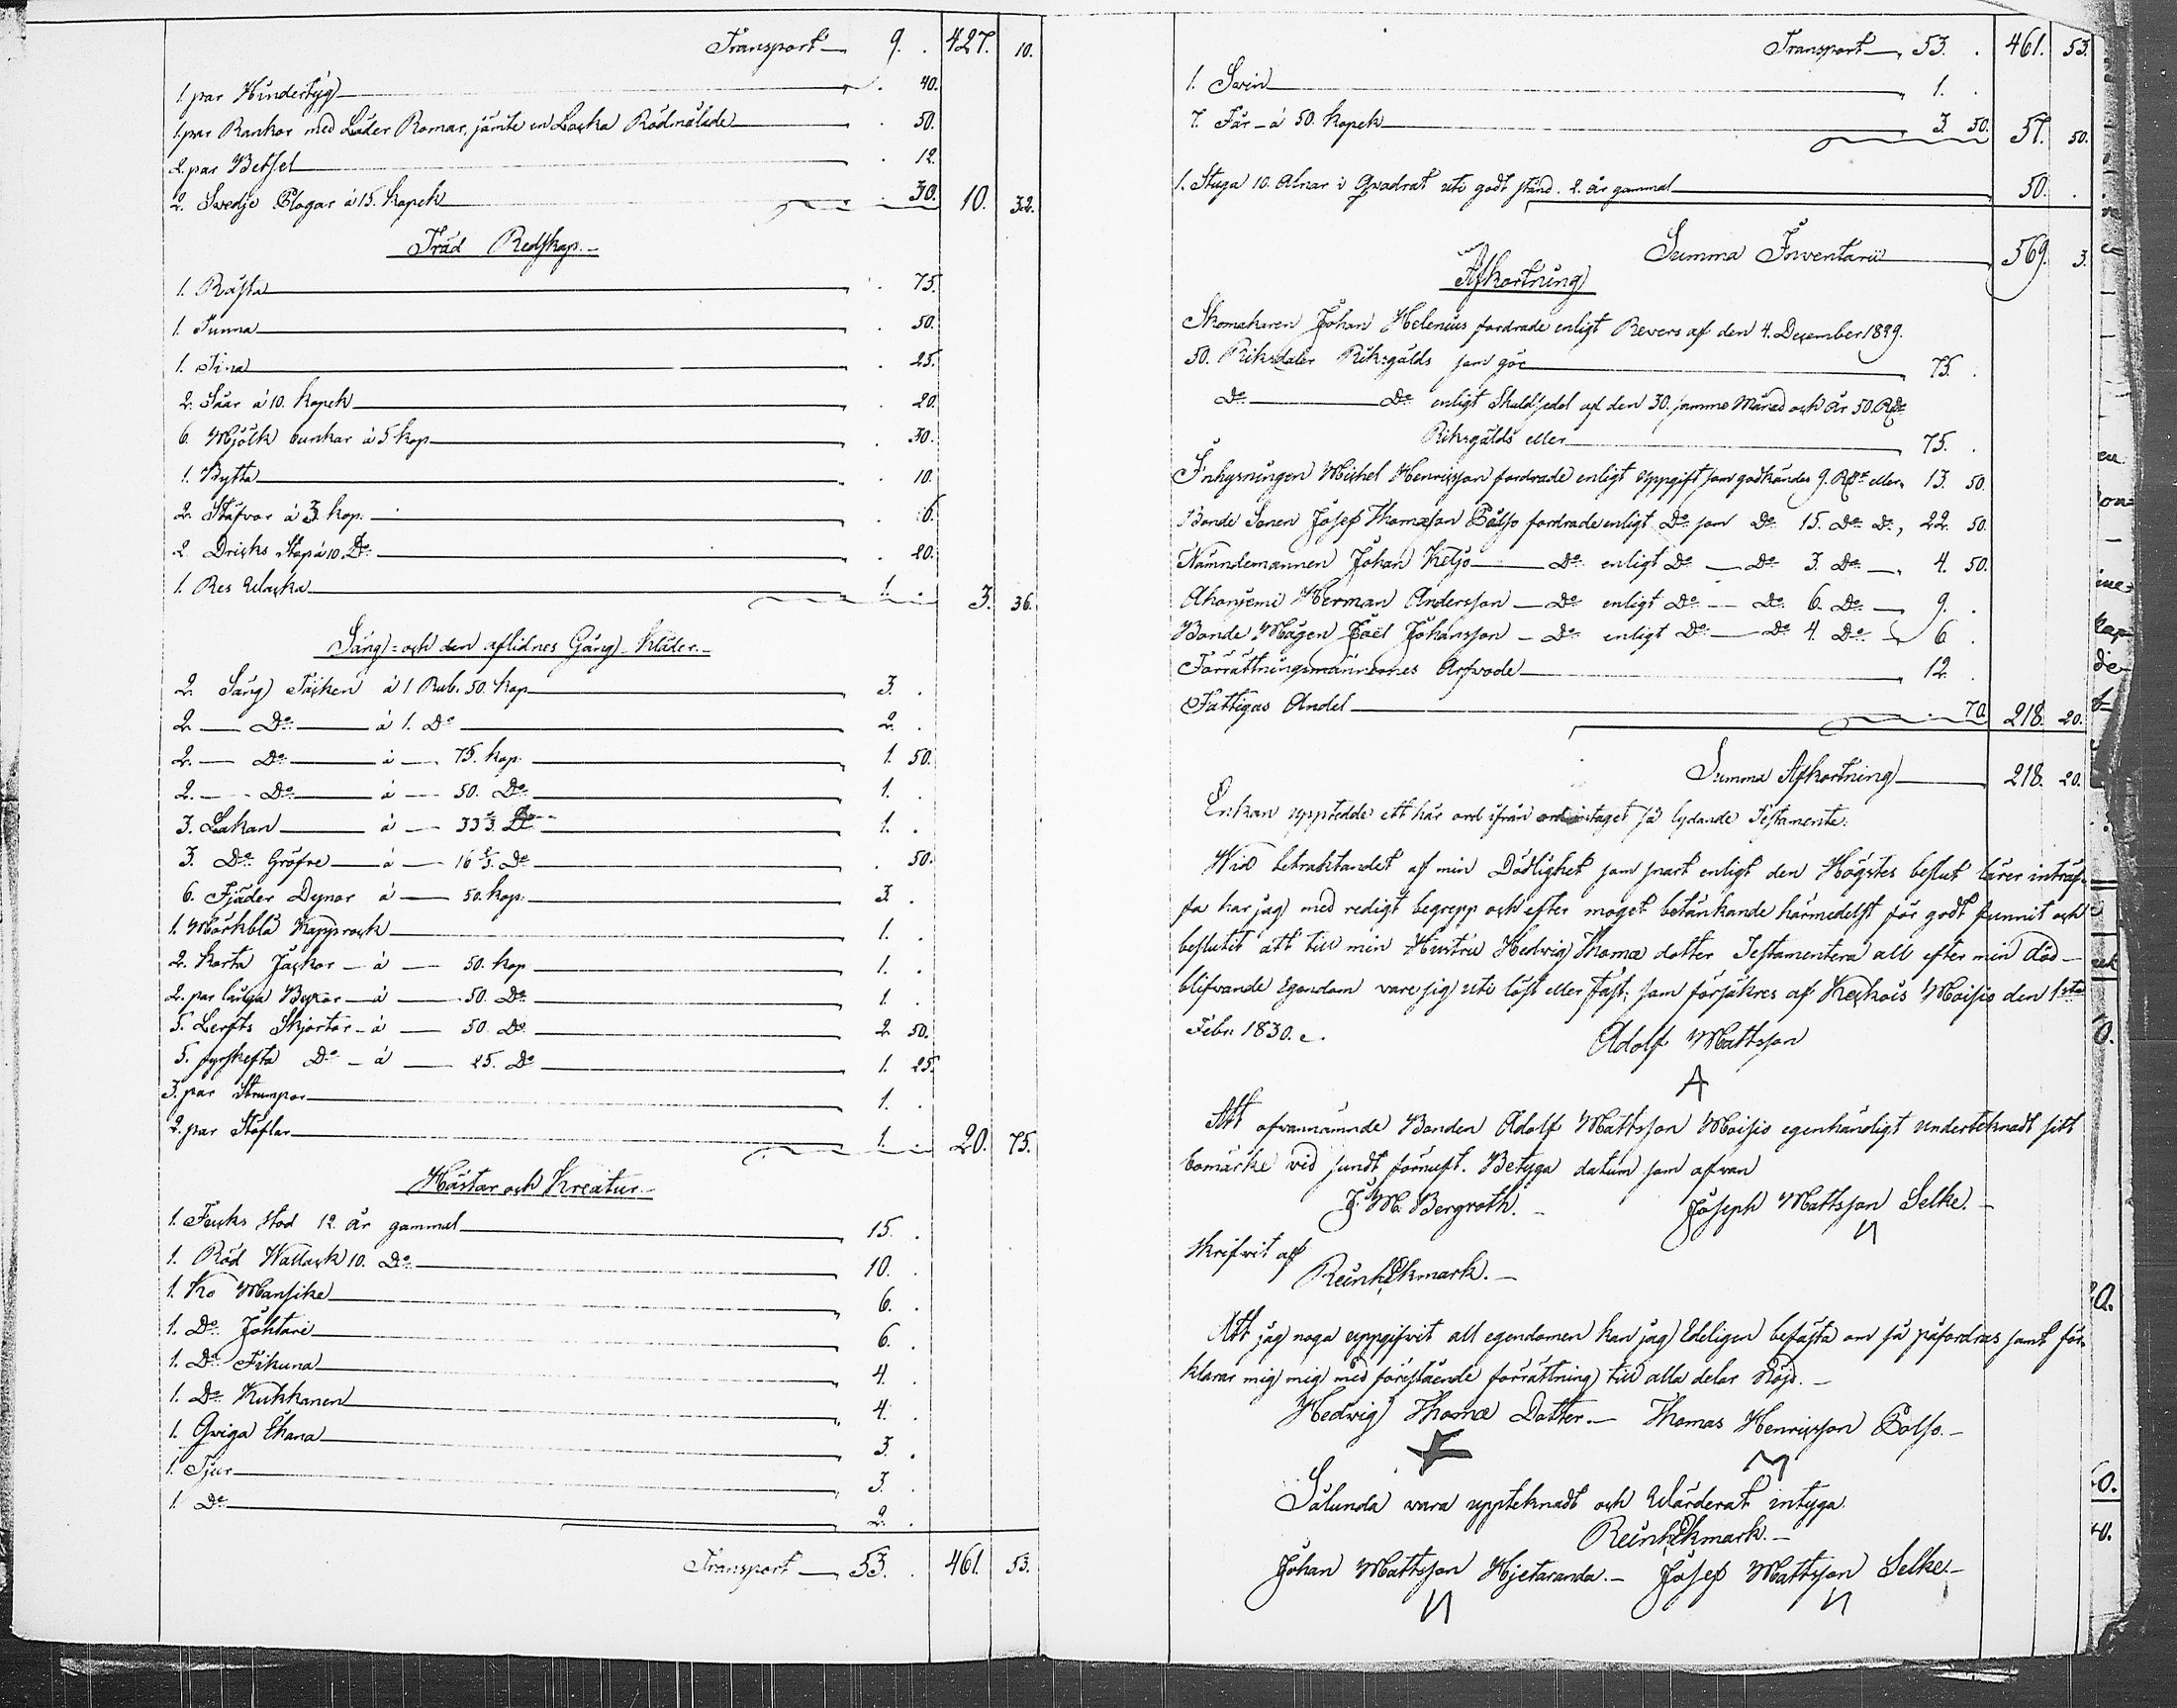 Transport 9. . 427. 10.
1. par Hindertyg . 40.
1. par Rankor med Läder Romar, jämte en Locka Rödmålade . 50.
2. par Betsel . 12.
2. Swedje Plogar á 15. Kopek . 30. 10. 32.
Träd Redskap.
1. 75.
1. Tunna . 50.
1. Tina . 25.
2. Såar á 10. Kopek . 20.
6. Mjölk bunkar á 5 kop . 30.
1. Bytta . 10.
2. Stäfvor á 3. kop. . 6.
2. Dricks Stop á 10. Do . 20.
1. Res 1. . 3. 36.
Säng= och den aflidnes Gång Kläder.
2. Säng Täcken á 1 Rub. 50. kop 3. .
2. Do á 1. Do 2. .
2. Do á 75. kop. 1. 50.
2. Do á 50. Do 1. .
3. Lakan á 33 1/3. Do 1. .
3. Do Gröfre á 16 2/3. Do . 50.
6. Fjäder Dynor á 50. kop. 3. .
1. Mörkblå Kapprock 1. .
2. korta Jackor á 50. kop 1. .
2. par långa Byxor á 50. Do 1. .
5. Lerfts Skjortor á 50. Do 2. 50.
5. fyrskefta Do á 25. Do 1. 25.
3. par Strumpor 1. .
2. par Stöflar 1. . 20. 75.
Hästar och Kreatur.
1. Fucks Stod 12. år gammal 15. .
1. Röd Wallack 10. Do 10. .
1. Ko Mansike 6. .
1. Do Johtari 6. .
1. Do Fikuna 4. .
1. Do Kukkanen 4. .
1. Qviga Ehana 3. .
1. Tjur 3. .
1. Do 2. .
Transport 53. . 461. 53.
Transport 53. . 461. 53.
1. Swin 1. .
7. Får á 50. kopek 3. 50. 57. 50.
1. Stuga 10. Alnar i Qvadrat uti godt stånd. 2. år gammal 50. .
Summa Inventarii 569. 3.
Afkortning
Skomakaren Johan Helenius fordrade enligt Revers af den 4. December 1829.
50. Riksdaler Riksgälds som gör 75. .
Do Do enligt Skuldsedel af den 30. samme Månad och År 50. Rdr
Riksgälds eller 75. .
Inhysningen Michel Henricsson fordrade enligt uppgift som godkändes 9. Rdr eller 13. 50.
Bonde Sonen Josef Thomæson Palso fordrade enligt Do som Do 15. Do Do, 22. 50.
Nämndemannen Johan Ketjo Do enligt Do Do 3. Do 4. 50.
Akonjemi Herman Andersson Do enligt Do Do 6. Do 9. .
Bonde Mågen Joël Johansson Do enligt Do Do 4. Do 6 .
Förrättningsmännernes Arfvode 12. .
Fattigas Andel . 70. 218. 20.
Summa Afkortning 218. 20.
Enkan upptedde ett här ord ifrån ord intaget så lydande Testamente.
Wid betraktandet af min Dödlighet som snart enligt den Högstes beslut lärer inträf-
fa har jag med redigt begrepp och efter moget betänkande härmedelst för godt funnit och
beslutit att till min Hustru Hedwig Thomæ dotter Testamentera all efter min död
blifvande Egendom vare sig uti löst eller fast: som försäkres af Keckois Moisio den 1sta
Febr. 1830.
Adolf Mattsson
Att ofvannämnde Bonden Adolf Mattsson Moisio egenhändigt underteknadt sitt
bomärke vid sundt förnuft. Betyga datum som ofvan
J. M. Bergroth. Joseph Mattsson Selke.
Skrifvit af
Reinh Ekmark.
Att jag noga uppgifvit all egendomen kan jag Edeligen befästa om så påfordras samt för-
klarar mig mig med förestående förrättning till alla delar Nöjd.
Hedwig Thomæ Dotter. Thomas Henricsson Palso.
Sålunda vara uppteknadt och Wärderat intyga.
Reinh Ekmark.
Johan Mattsson Hjetaranda. Josef Mattsson Selke.